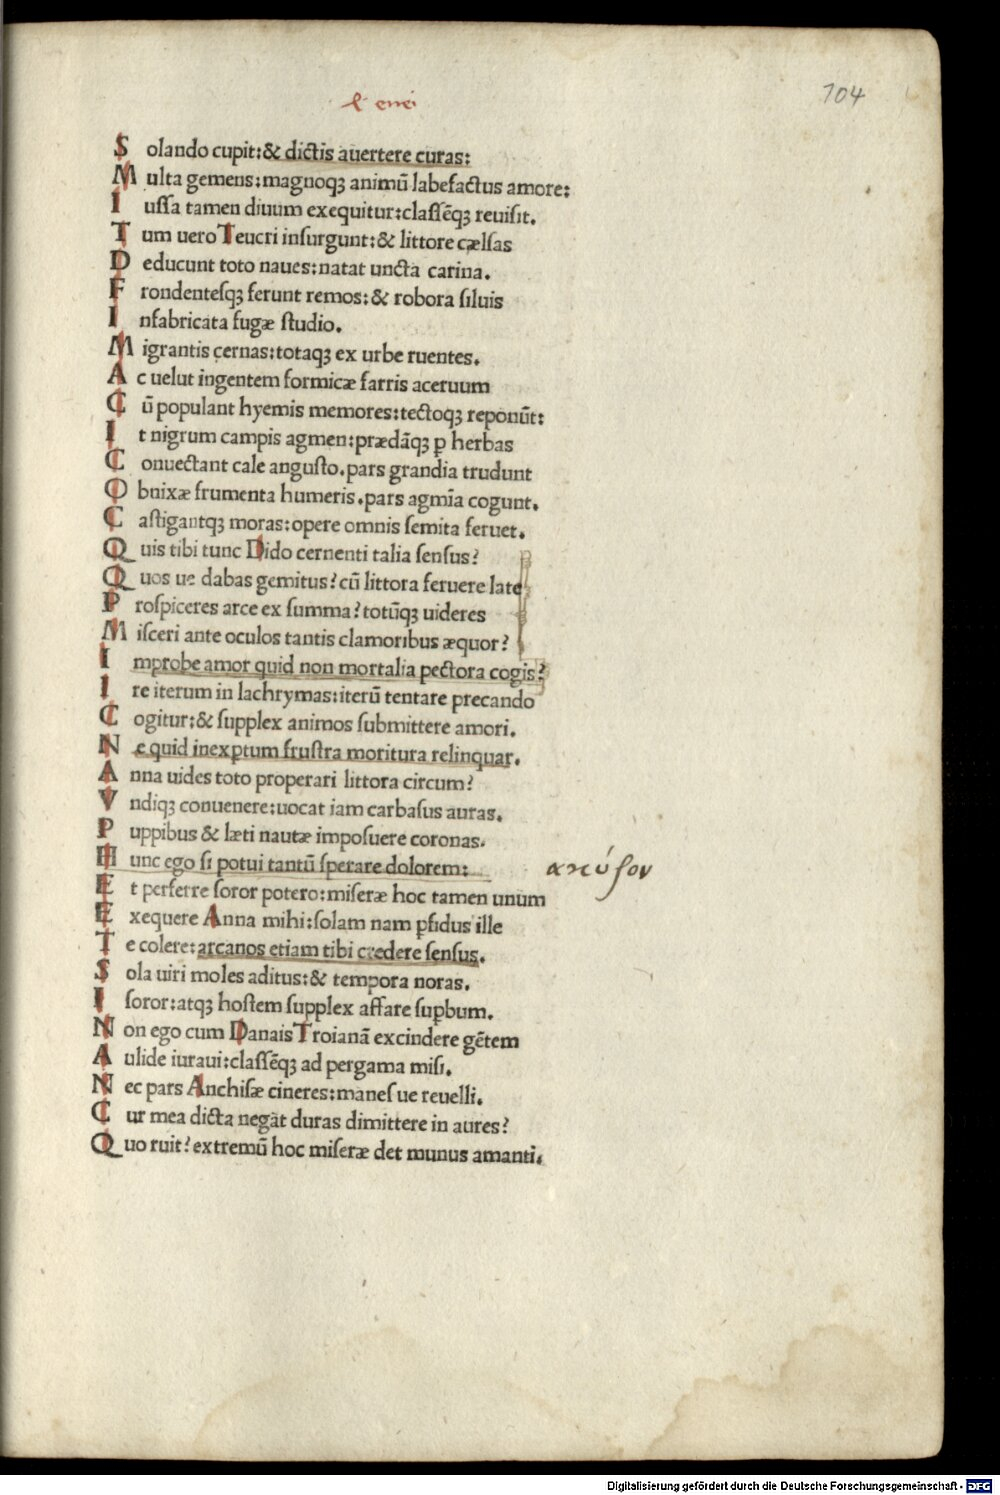 104
Solando cupit:& dictis auertere curas:
Multa gemens:magnoqꝫ animū labefactus amore:
Iussa tamen diuum exequitur:classēqꝫ reuisit.
Tum uero Teucri insurgunt:& littore cælsas
Deducunt toto naues:natat uncta carina.
Frondentesqꝫ ferunt remos:& robora siluis
Infabricata fugæ studio.
Migrantis cernas:totaqꝫ ex urbe ruentes.
Ac uelut ingentem formicæ farris aceruum
Cū populant hyemis memores:tectoqꝫ reponūt:
It nigrum campis agmen:prædāqꝫ ꝑ herbas
Conuectant cale angusto.pars grandia trudunt
Obnixæ frumenta humeris.pars agmīa cogunt.
Castigantqꝫ moras:opere omnis semita feruet.
Quis tibi tunc Dido cernenti talia sensus?
Quos ue dabas gemitus?cū littora feruere late
Prospiceres arce ex summa?totūqꝫ uideres
Misceri ante oculos tantis clamoribus æquor?
Improbe amor quid non mortalia pectora cogis?
Ire iterum in lachrymas:iterū tentare precando
Cogitur:& supplex animos submittere amori.
Ne quid inexꝑtum frustra moritura relinquar.
Anna uides toto properari littora circum?
Vndiqꝫ conuenere:uocat iam carbasus auras.
Puppibus & læti nautæ imposuere coronas.
Hunc ego si potui tantū sperare dolorem:
Et perferre soror potero:miseræ hoc tamen unum
Exequere Anna mihi:solam nam ꝑfidus ille
Te colere:arcanos etiam tibi credere sensus.
Sola uiri moles aditus:& tempora noras.
I soror:atqꝫ hostem supplex affare suꝑbum.
Non ego cum Danais Troianā excindere gētem
Aulide iuraui:classēqꝫ ad pergama misi.
Nec pars Anchisæ cineres:manes ue reuelli.
Cur mea dicta negat duras dimittere in aures?
Quo ruit?extremū hoc miseræ det munus amanti.
Digitalisierung gefördert durch die Deutsche Forschungsgemeinschaft - DFG